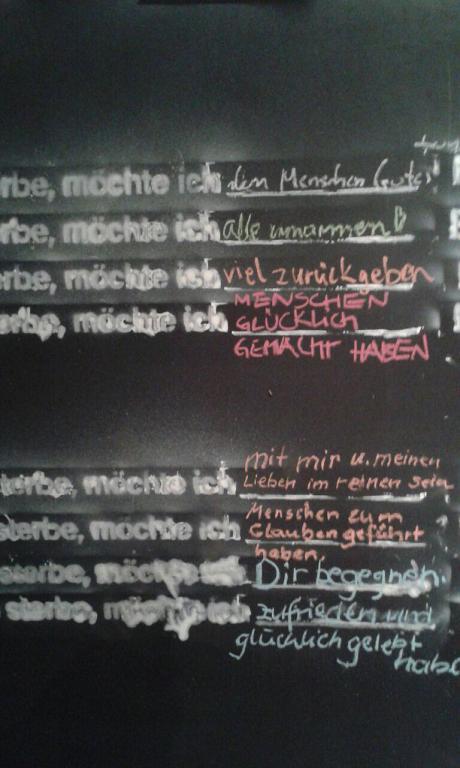 rbe, möchte ich den Menschen Gutes
rbe, möchte ich alle umarmen
erbe, möchte ich viel zurückgeben
erbe, möchte ich MENSCHEN
GLÜCKLICH
GEMACHT HABEN
mit mir u. meinen
terbe, möchte ich Lieben im reinen sein
Menschen zum
sterbe, möchte ich Glauben geführt
haben.
sterbe, möchte ich Dir begegnen.
sterbe, möchte ich zufrieden und
glücklich gelebt
habe